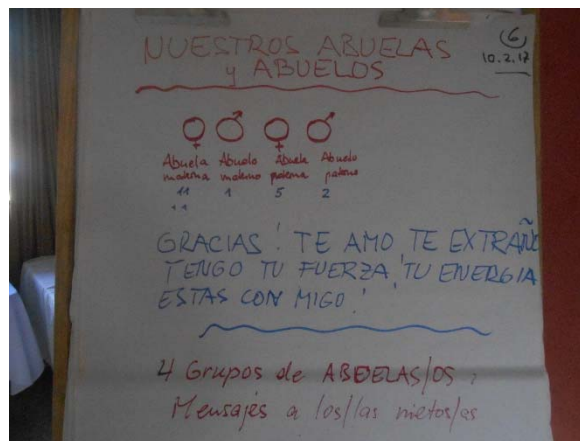 NUESTROS ABUELAS
y ABUELOS
6
10.2.17
♀ ♂ ♀ ♂
Abuela Abuelo Abuela Abuelo
materna materno paterna paterno
11 1 5 2
11
GRACIAS! TE AMO, TE EXTRAÑO
TENGO TU FUERZA, TU ENERGIA
ESTAS CON MIGO!
4 Grupos de ABUELAS/OS:
Mensajes a los/las nietos/as